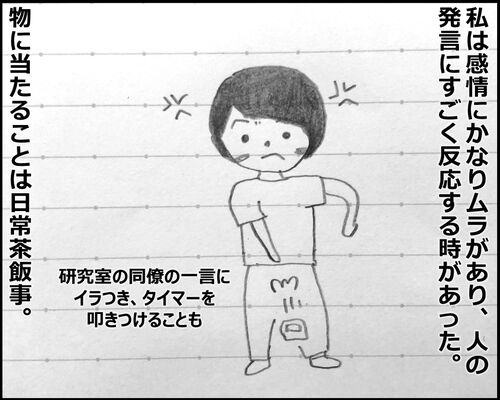 私は感情にかなりムラがあり、人の
発言にすごく反応する時があった。
物に当たることは日常茶飯事。
研究室の同僚の一言に
イラつき、タイマーを
叩きつけることも